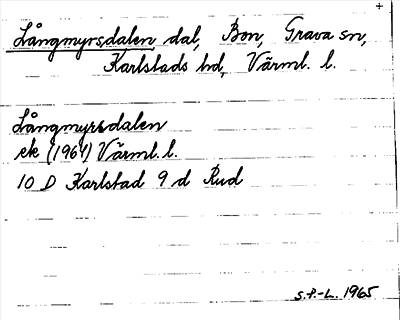 +
Långmyrsdalen dal, Bon, Grava sn,
Karlstads hd, Värml. l.
Långmyrsdalen
ek (1964) Värml. l.
10 D Karlstad 9 d Rud
S.F.-L. 1965